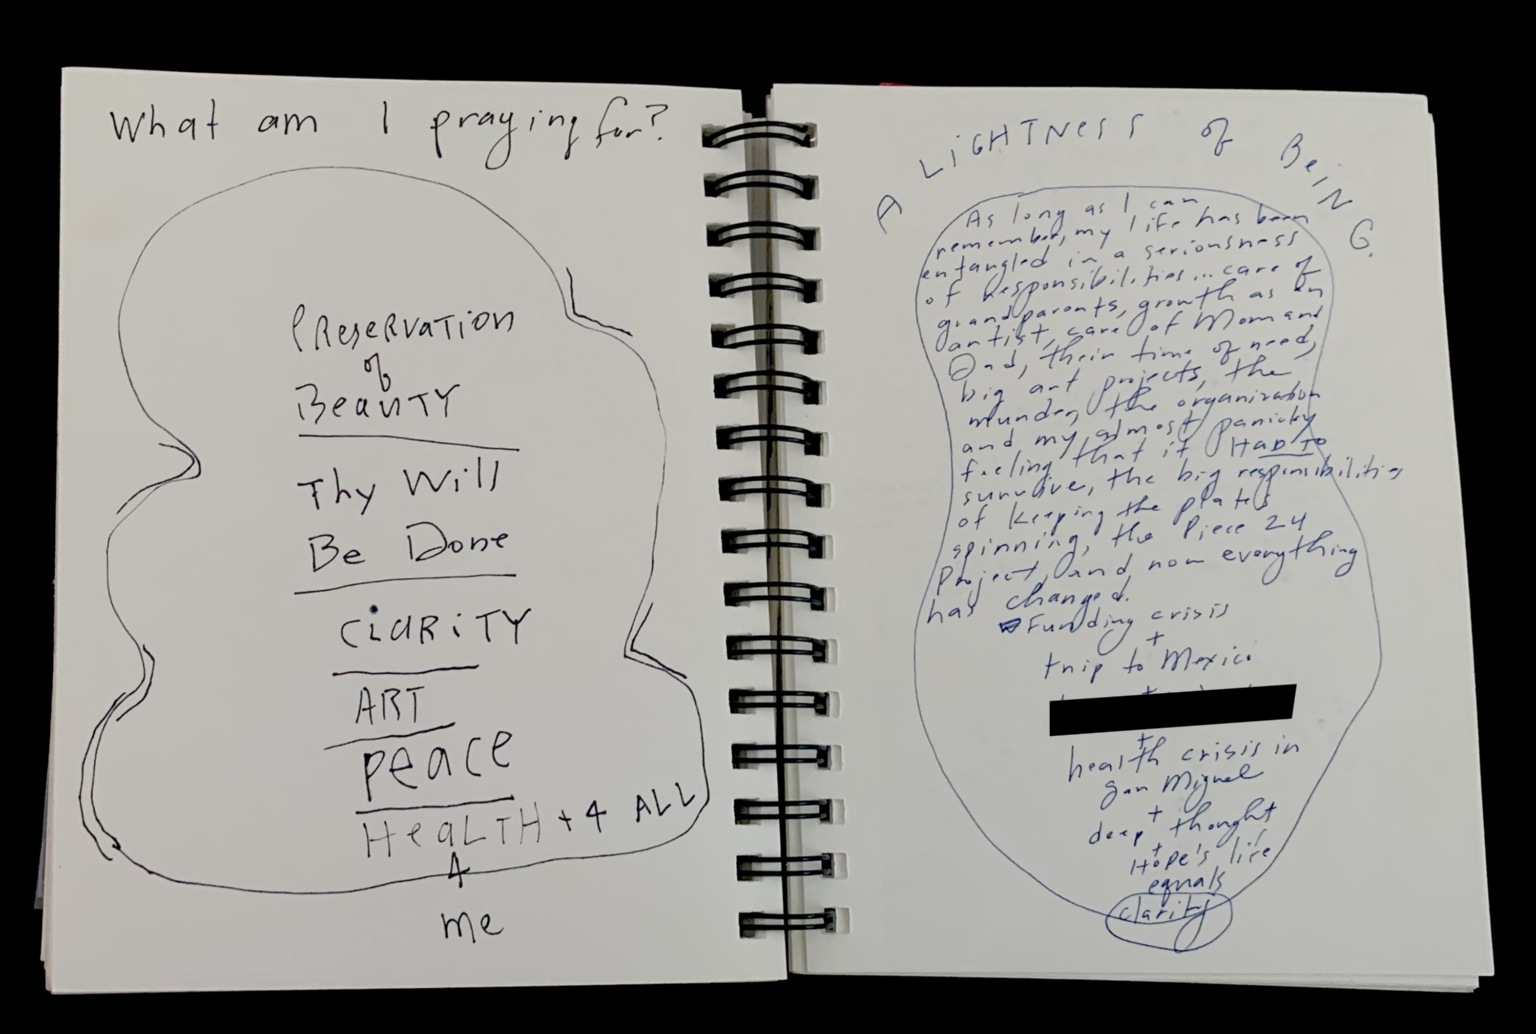 What am I praying for?
PRESERVATION
of
BEAUTY
Thy Will
Be Done
CLARITY
ART
PEACE
HEALTH + 4 ALL
4
me
A LIGHTNESS of BEING.
As long as I can
remember, my life has been
entangled in a seriousness
of responsibilities... care of
grandparents, growth as an
artist, care of Mom and
Dad, their time of need,
big art projects, the
murder, the organization
and my almost panicky
feeling that it HAD TO
survive, the big responsibilities
of keeping the plates
spinning, the Piece 24
Project, and now everything
has changed.
Funding crisis
+
trip to Mexico
+
health crisis in
San Miguel
+
deep thought
+
Hope's life
equals
clarity